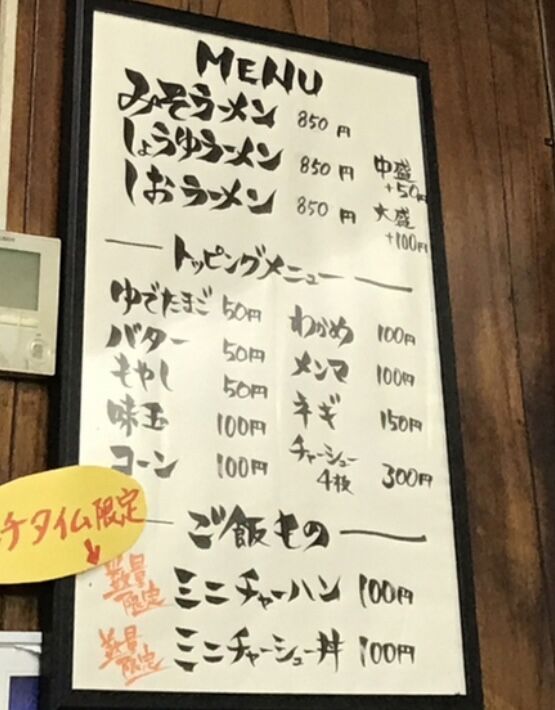 MENU
みそラーメン 850円
しょうゆラーメン 850円 中盛 +50円
しおラーメン 850円 大盛 +100円
トッピングメニュー
ゆでたまご 50円 わかめ 100円
バター 50円 メンマ 100円
もやし 50円 ネギ 150円
味玉 100円 チャーシュー 4枚 300円
コーン 100円
ご飯もの
ケタイム限定
数量限定 ミニチャーハン 100円
数量限定 ミニチャーシュー丼 100円